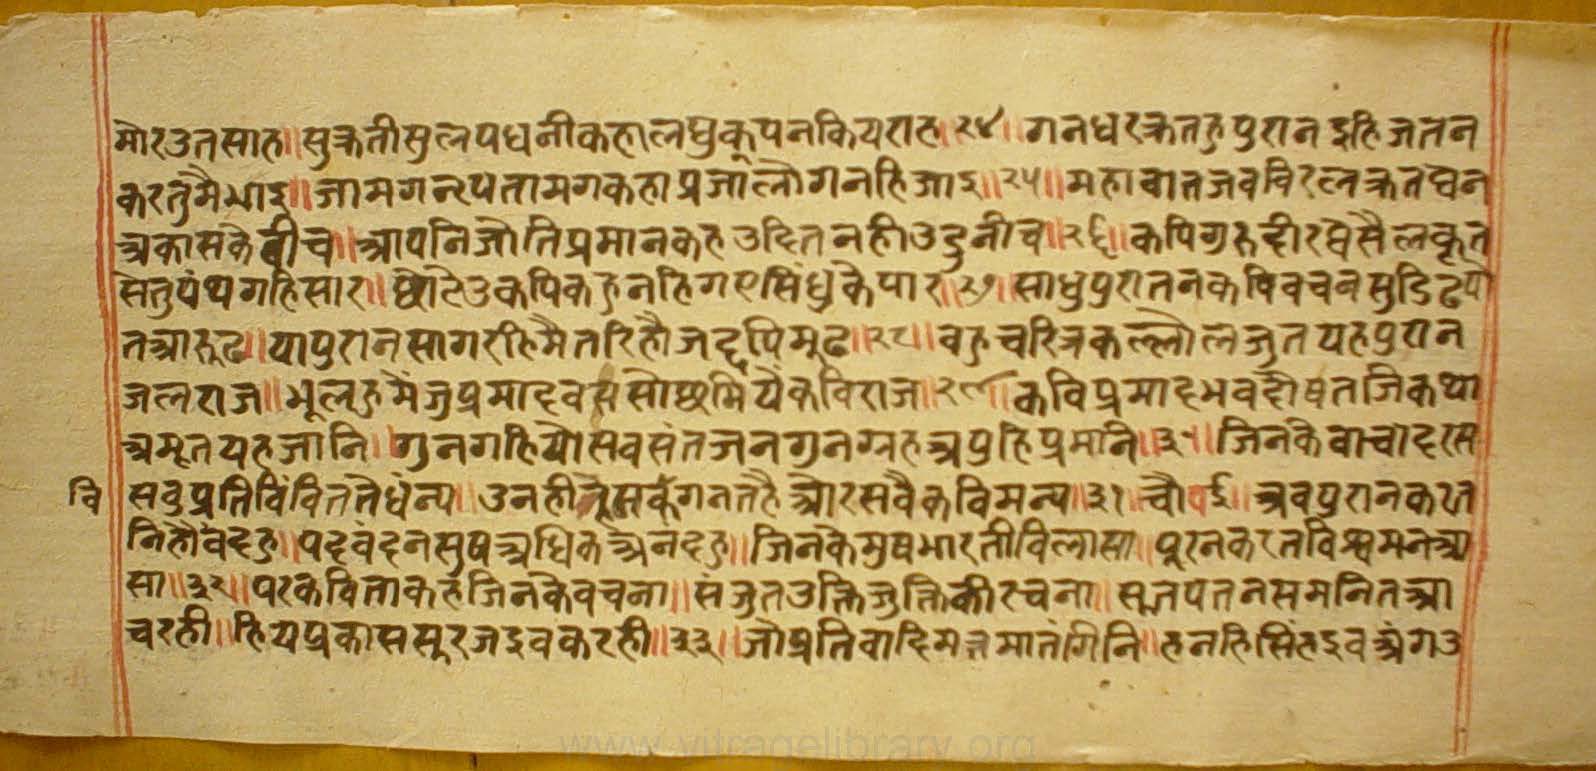 मोरउतसाह॥सुक्रतीसुलपधनीकहालघुकूपनकियराह॥२४॥गनधरक्रतहुपुरानइहिजतन
करतुमैभाइ॥जामगनरपतामगकहाप्रजालौगनहिजाइ॥२५॥महावातजवविरलक्रतघन
अकासकैवीच॥आपनिजोतिप्रमानकहउदितनहीउडुनीच॥२६॥कपिगुरुहीरघसैलकृत
सेतुपंथगहिसार॥छोटेउकपिकहनहिगएसिंधुकेपार॥२७॥साधुपुरातनकविवचनसुडिढपो
तआरूढ॥यापुरानसागरहिमैतरिहौजद्दपिमूढ॥२८॥वहुचरित्रकल्लोलजुतयहपुरान
जलराज॥भूलहुमैंजुप्रमादवससोछमियैकविराज॥२९॥कविप्रमादभवदोषतजिकथा
अमृतयहजानि॥गुनगहियोसवसंतजनगुनग्रहअपुहिप्रमानि॥३०॥जिनकेवाचादरस
सवुप्रतिविंविततैधंन्य॥उनहीसकैगनतहैऔरसवैकविमन्य॥३१॥चौपई॥अवपुरानकरत
वि
निहौवंदहु॥पदवंदनसुषअधिकअनंदहु॥जिनकैमुषभारतीविलासा॥पूरनकरतविश्वमनआ
सा॥३२॥परकविताकहजिनकैवचना॥संजुतउक्तिजुक्तिकीरचना॥सूतपतनसमनितआ
चरही॥हियप्रकाससूरजइवकरही॥३३॥जोप्रतिवादिमतमातंगिनि॥हनहिसिंहइवअंगउ
www.vitragelibrary.org